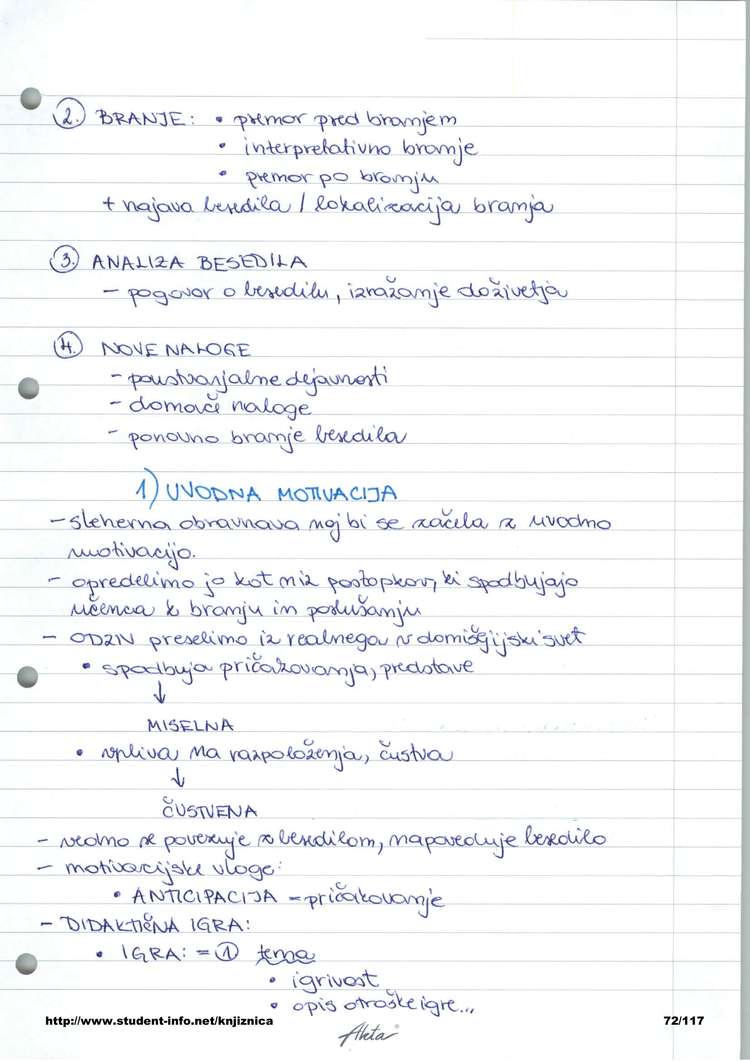 2. BRANJE: • premor pred branjem
• interpretativno branje
• premor po branju
+ najava besedila / lokalizacija branja
3. ANALIZA BESEDILA
- pogovor o besedilu, izražanje doživetja
4. NOVE NALOGE
- poustvarjalne dejavnosti
- domače naloge
- ponovno branje besedila
1) UVODNA MOTIVACIJA
- sleherna obravnava naj bi se začela z uvodno
motivacijo.
- opredelimo jo kot niz postopkov, ki spodbujajo
učenca k branju in poslušanju
- preselimo iz realnega v domišljijski svet
• spodbuja pričakovanja, predstave
↓
MISELNA
• vpliva na razpoloženja, čustva
↓
ČUSTVENA
- vedno se povezuje z besedilom, napoveduje besedilo
- motivacijske vloge:
• ANTICIPACIJA = pričakovanje
- DIDAKTIČNA IGRA:
• IGRA: = 1 tema
• igrivost
• opis otroške igre...
http://www.student-info.net/knjiznica
72/117
Akta